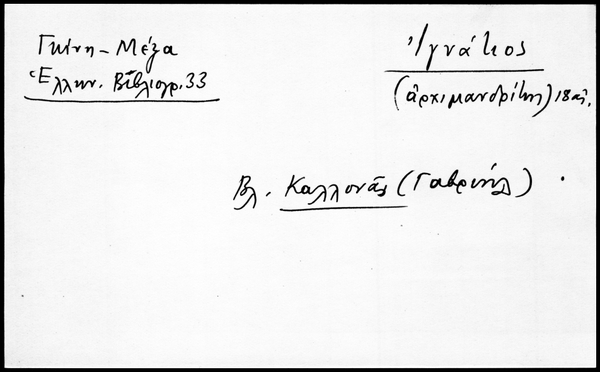 Γκίνη - Μέξα
Ἑλλην. Βιβλιογρ. 33
Ἰγνάτιος
(ἀρχιμανδρίτης) 18 αἰ.
Βλ. Καλλονᾶς (Γαβριήλ)